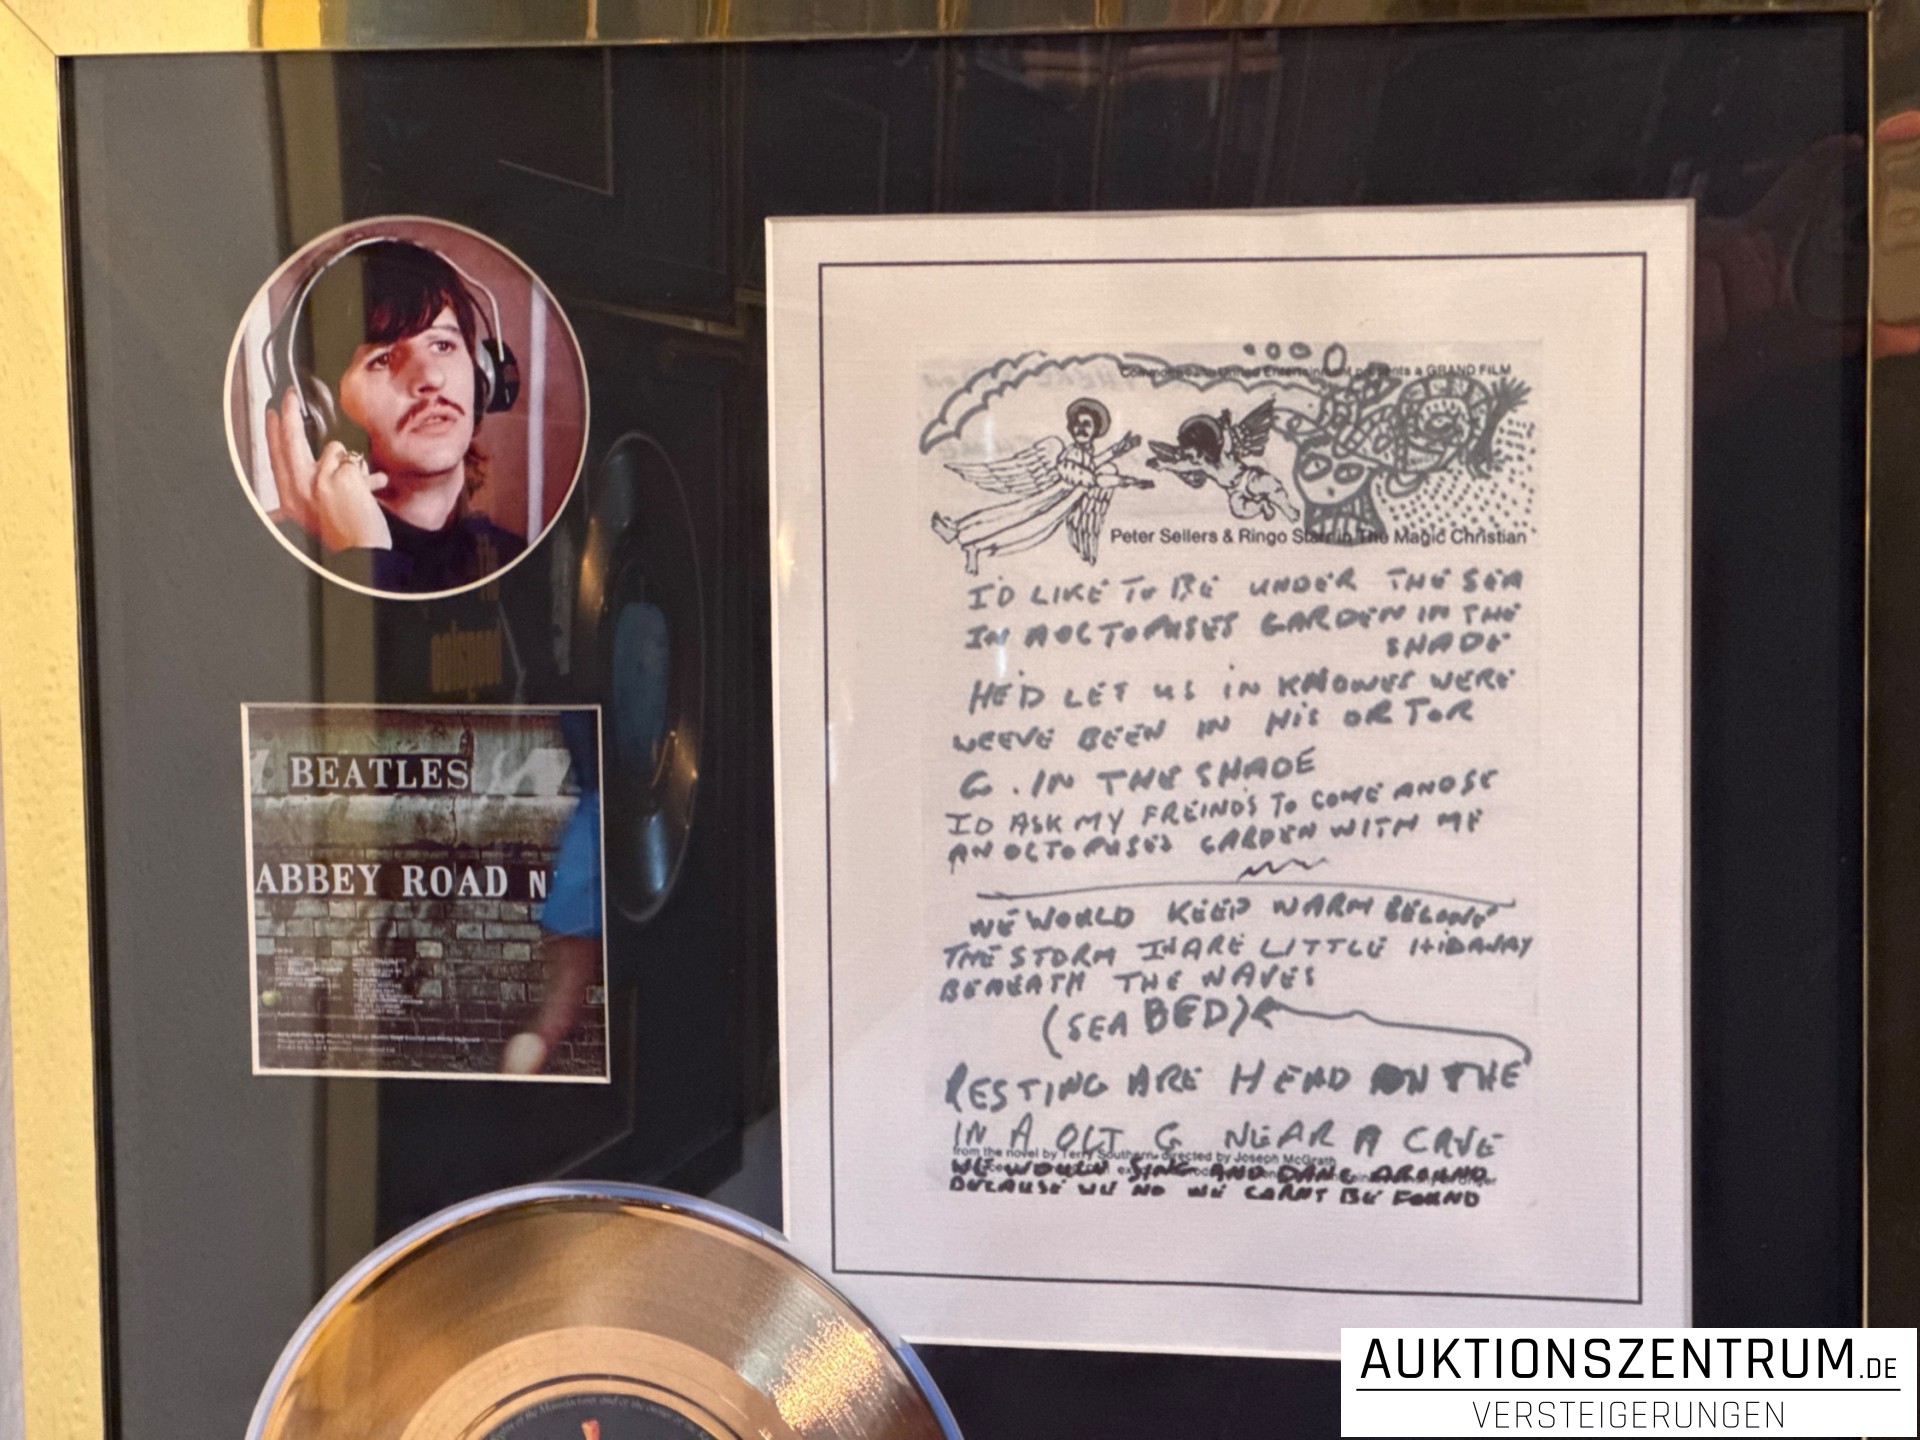 Commonwealth United Entertainment presents a GRAND FILM
Peter Sellers & Ringo Starr in The Magic Christian
I'D LIKE To BE UNDER THE SEA
IN A OCTOPUSES GARDEN IN THE
SHADE
HE'D LET US IN KNOWES WERE
WEEVE BEEN IN HIS OR TOR
G. IN THE SHADE
ID ASK MY FREINDS To COME AND SE
AN OCTOPUSES GARDEN WITH ME
WE WOULD KEEP WARM BELOWE
THE STORM IN ARE LITTLE HIDAWAY
BENEATH THE WAVES
(SEA BED)
RESTING ARE HEAD ON THE
IN A OCT G NEAR A CAVE
from the novel by Terry Southern directed by Joseph McGrath
WE WOULD SING AND DANC AROUND
BECAUSE WE NO WE CARNT BE FOUND
BEATLES
ABBEY ROAD N
AUKTIONSZENTRUM.DE
VERSTEIGERUNGEN